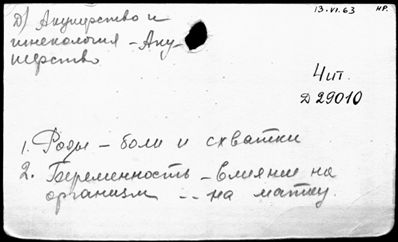 13.VI.63 НР.
Д) Акушерство и
гинекология - Аку-
шерство
4 ит.
Д 29010
1. Роды - боли и схватки
2. Беременность - влияние на
организм -- на матку.